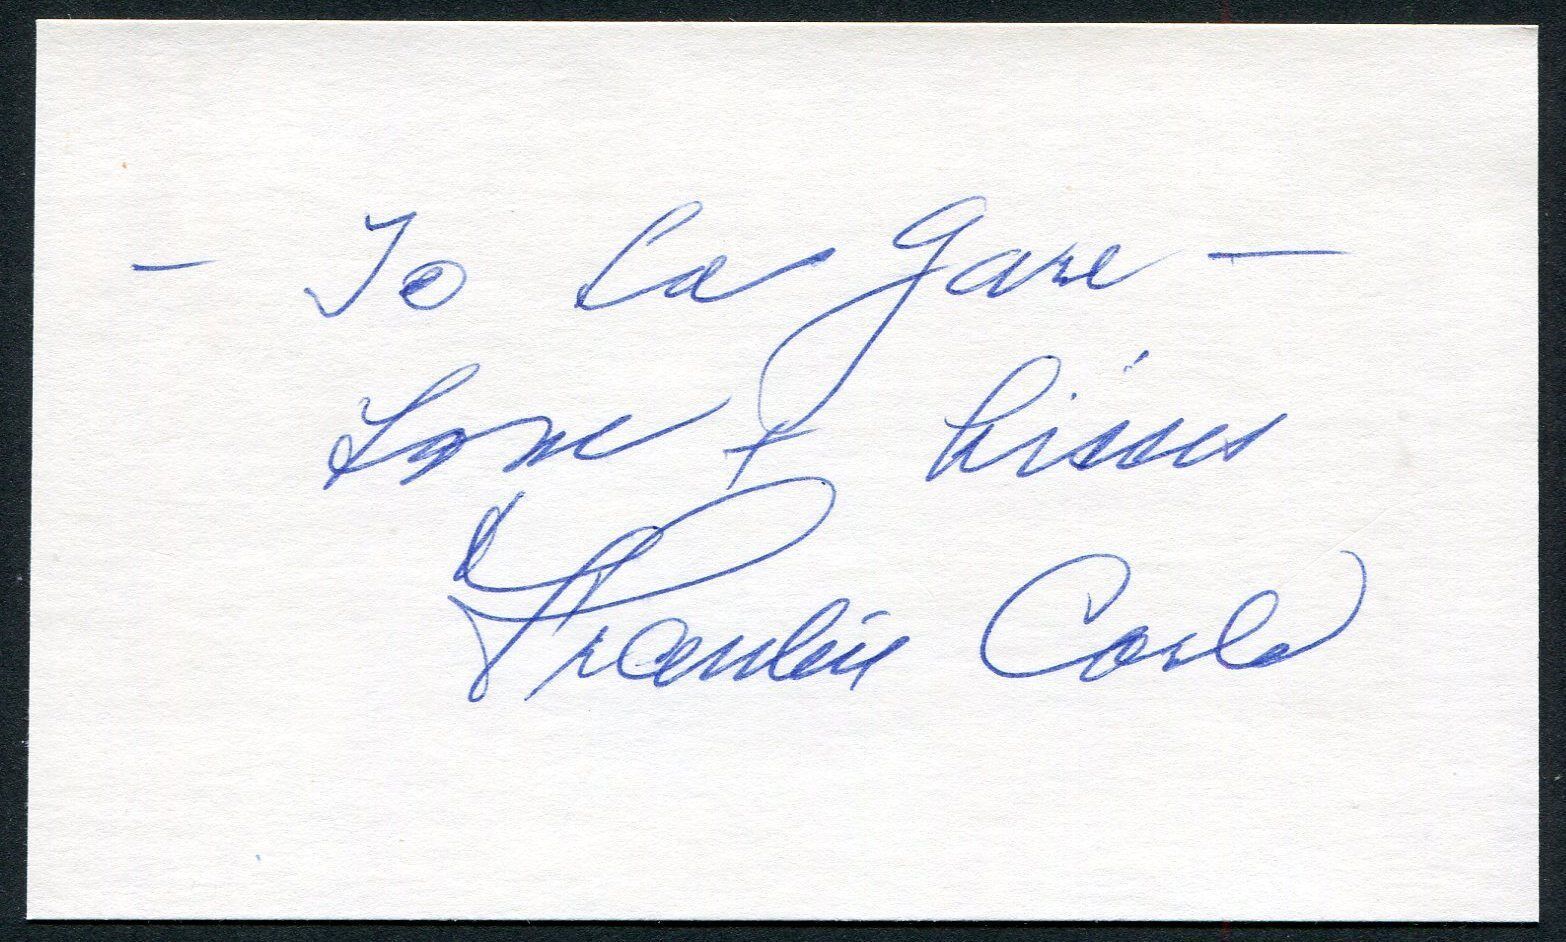 - To La Gare -
Love + kisses
Frankie Carle